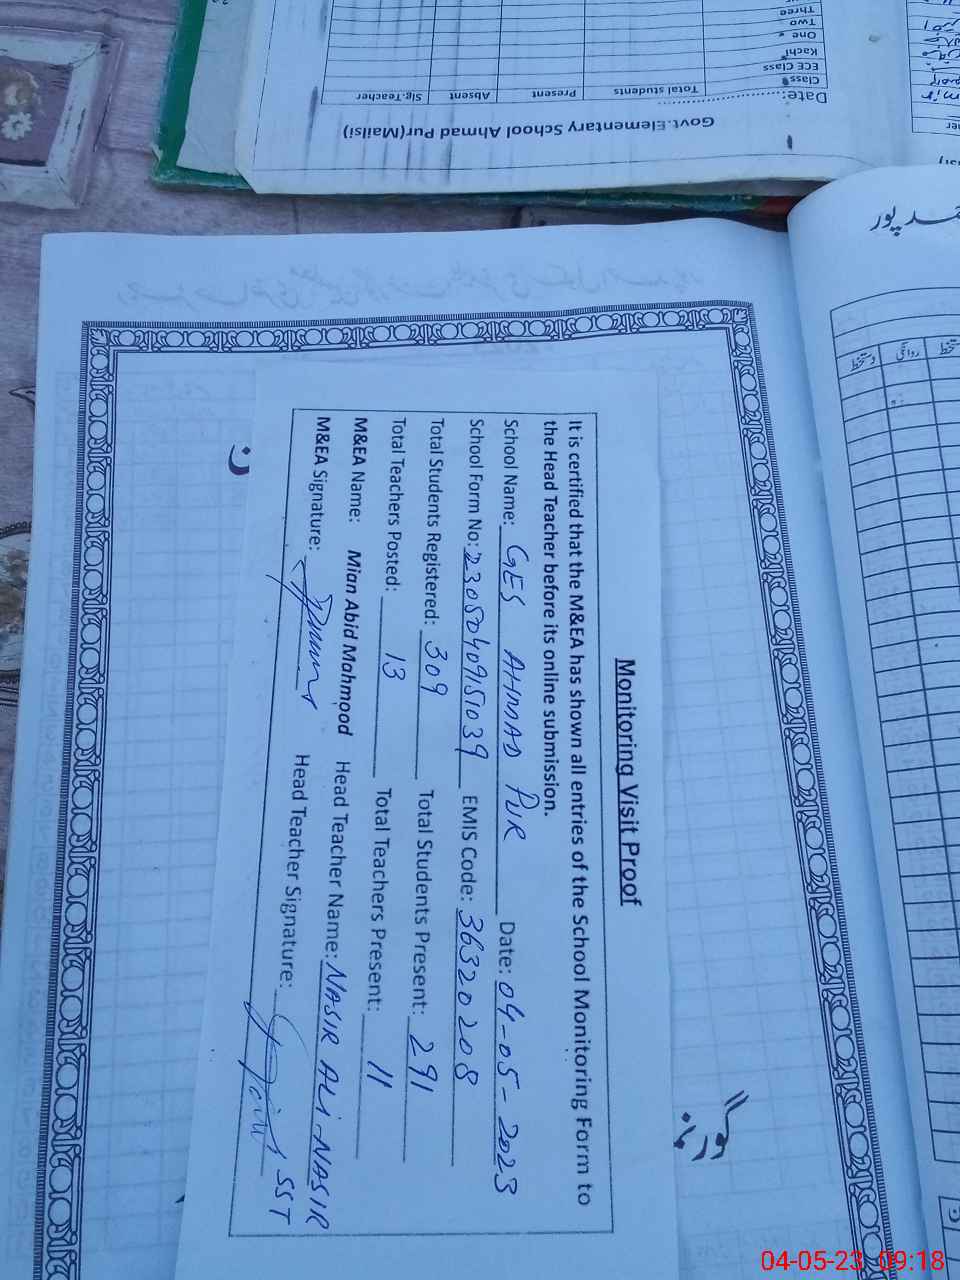 Monitoring Visit Proof
It is certified that the M&EA has shown all entries of the School Monitoring Form to
the Head Teacher before its online submission.
School Name: GES AHMAD PUR Date: 04-05-2023
School Form No: 23050409151039 EMIS Code: 36320208
Total Students Registered: 309 Total Students Present: 291
Total Teachers Posted: 13 Total Teachers Present: 11
M&EA Name: Mian Abid Mahmood Head Teacher Name: NASIR ALI NASIR
M&EA Signature: Head Teacher Signature: SST
Govt.Elementary School Ahmad Pur(Mailsi)
Date:
Class Total students Present Absent Sig.Teacher
ECE Class
Kachi
One
Two
Three
گورنمنٹ
دستخط روانگی
04-05-23 09:18